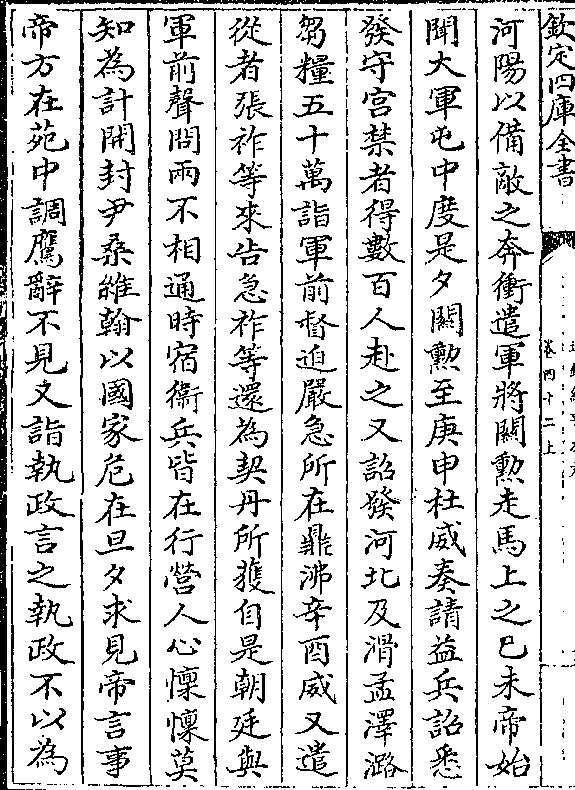 欽定四庫全書
卷四十二上
河陽以備敵之奔衝遣軍將關勲走馬上之已未帝始
聞大軍屯中度是夕關勲至庚申杜威奏請益兵詔悉
發守宫禁者得數百人赴之又詔發河北及滑孟澤潞
芻糧五十萬詣軍前督迫嚴急所在鼎沸辛酉威又遣
從者張祚等來告急祚等還為契丹所獲自是朝廷與
軍前聲問兩不相通時宿衞兵皆在行營人心懍懍莫
知為計開封尹桑維翰以國家危在旦夕求見帝言事
帝方在苑中調鷹辭不見又詣執政言之執政不以為